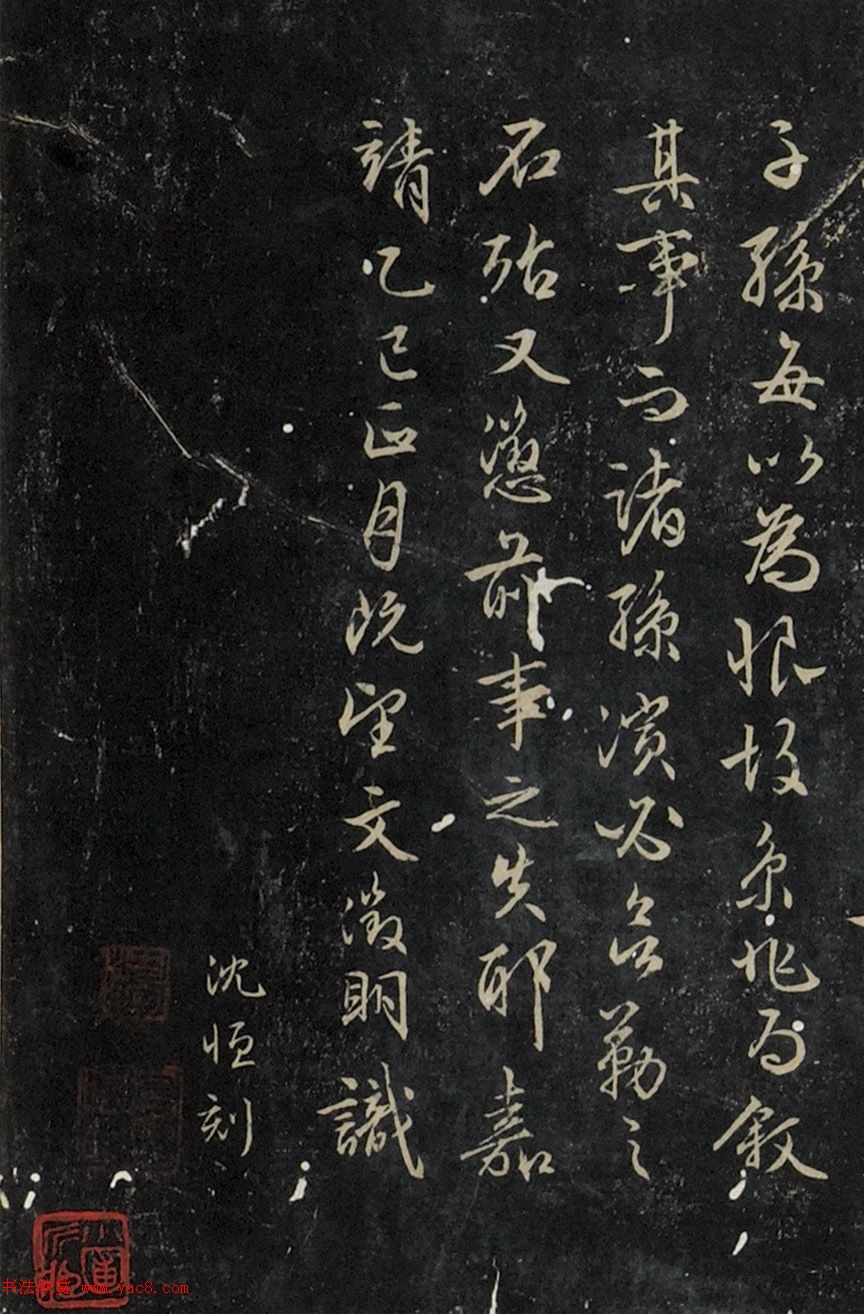 子孫每以為恨故余為敘
其事而諸孫濱必勒之
石殆又懲前事之失耶嘉
靖乙巳正月既望文徵明識
沈恒刻
书法欣赏 www.yac8.com